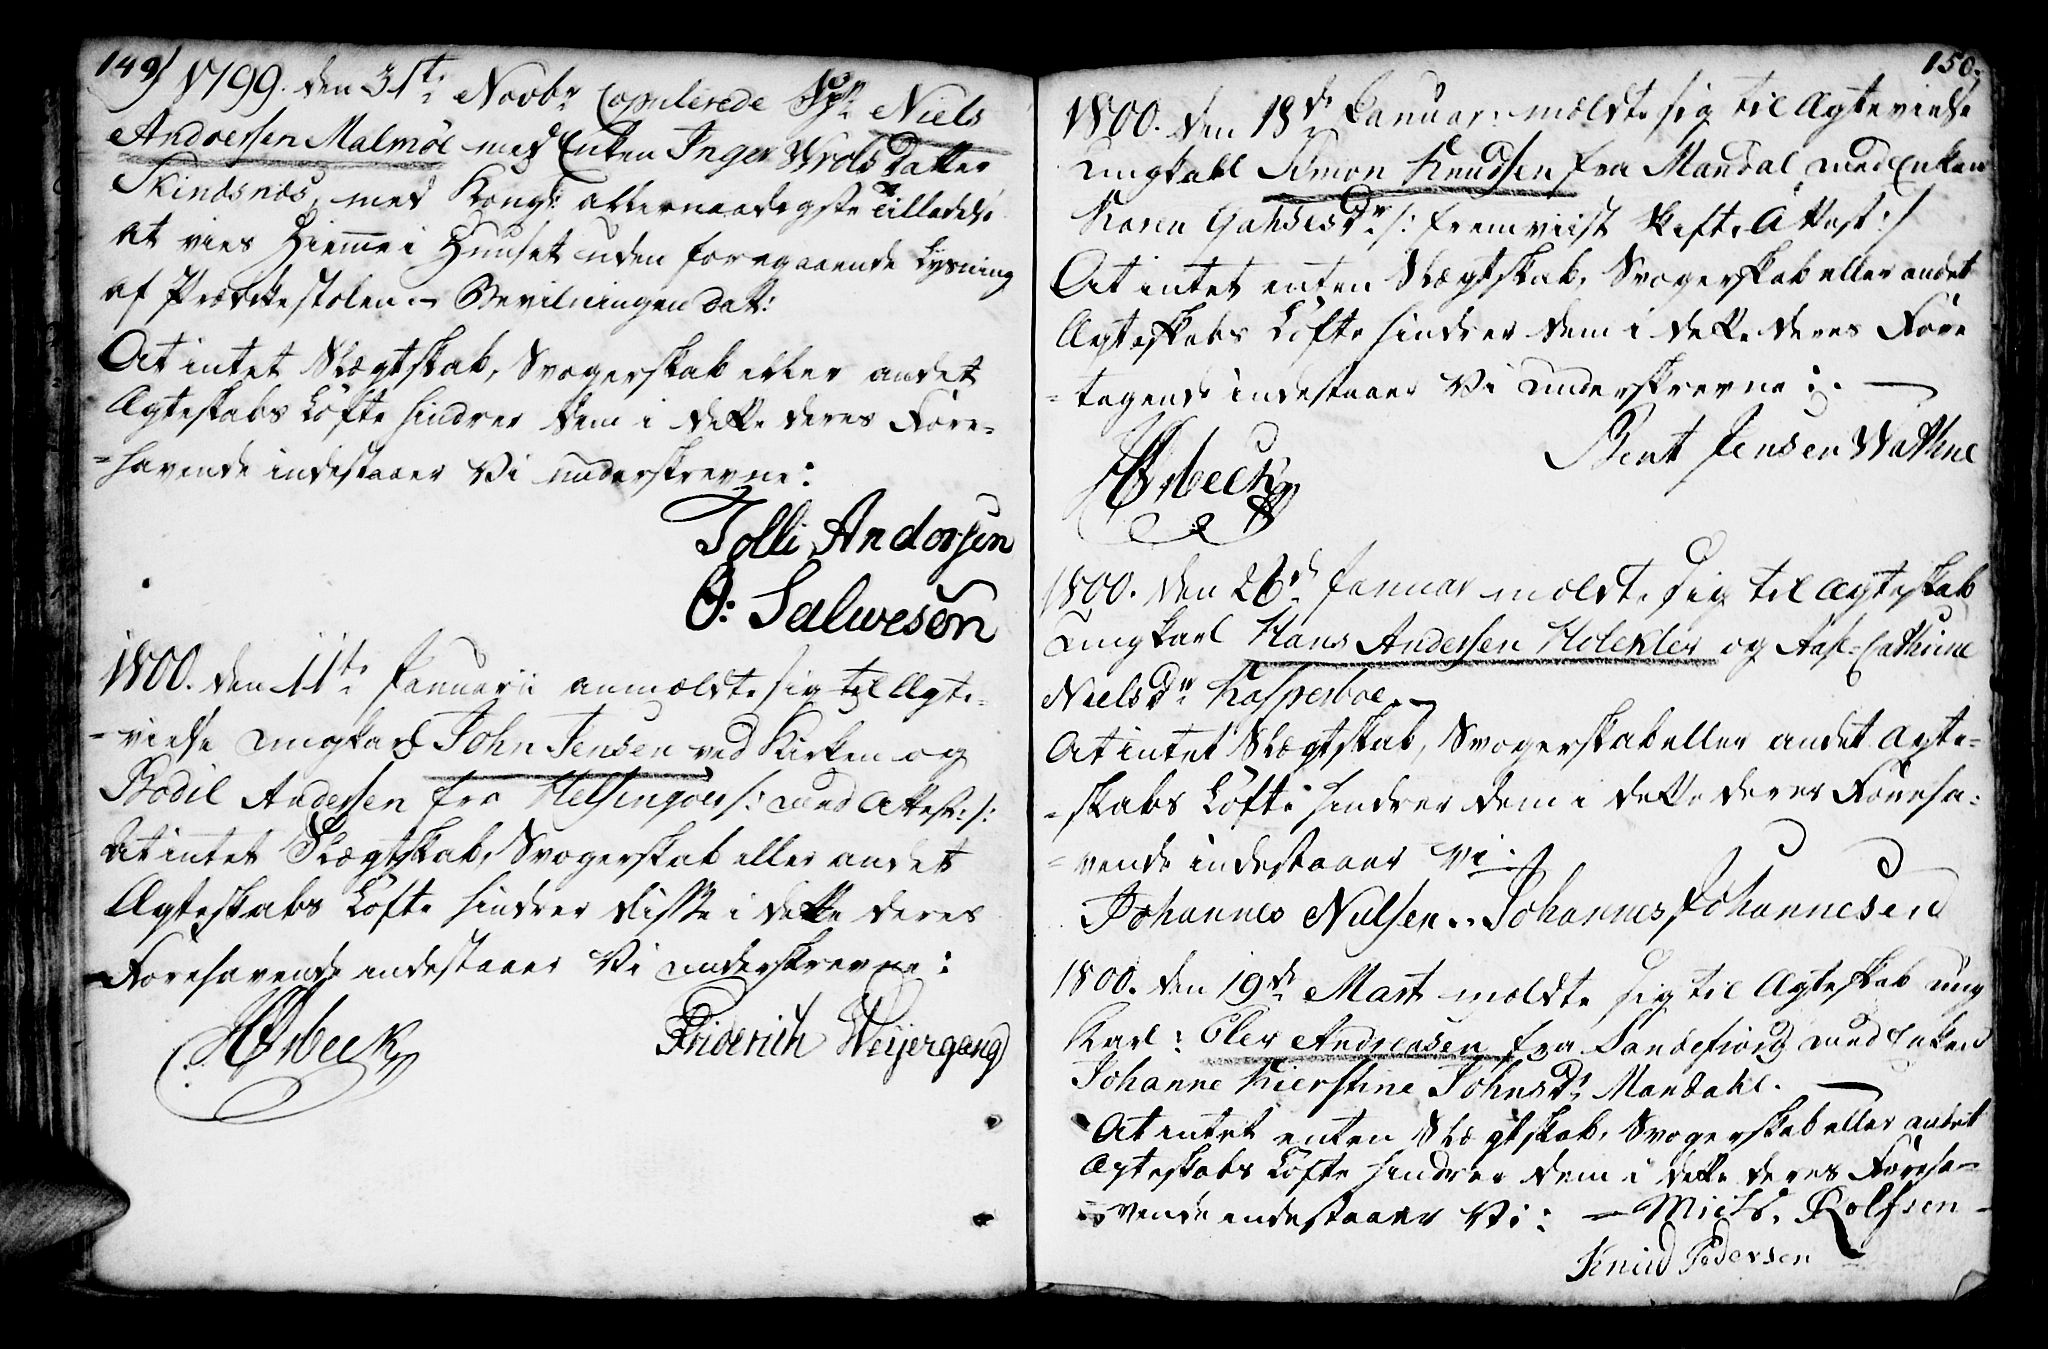 149/
1799. den 31te Novbr Copulerede Niels
Andersen Malmöe med Enken Inger Wrolsdatter
Skindsnæs, med Kongl: allernaadigste Tilladelse
at vies Hiemme i Huuset uden foregaaende Lysning
af Prædikestolen - Bevilningen dat:
At intet Slægtskab, Svogerskab eller andet
Ægteskabs Löfte hindrer dem i dette deres Fore=
=havende indestaaer Vi underskrevne:
Tolli Andersen
O: Salwesøn
1800. den 11te Januarii anmældte sig til Ægte=
=vielse ungkarl John Jensen ved Kirken og
Bodil Andersen fra Helsingöer /: med Attest :/:
At intet Slægtskab, Svogerskab eller andet
Ægteskabs Löfte hindrer disse i dette deres
Forehavende indestaaer Vi underskrevne:
Friderich Weijergang
150.
1800. den 18de Januar: meldte sig til Ægtevielse
ungkarl Simon Knudsen fra Mandal med Enken
Karen Gabbesdr /: fremviist Skifte Attest :/
At intet enten Slægtskab, Svogerskab eller andet
Ægteskabs Löfte hindrer dem i dette deres Fore
=tagende indestaaer Vi underskrevne:
Bent Jensen Wathne
1800. den 26de Januar meldte sig til Ægteskab
Ungkarl Hans Andersen og Aase Cathrine
Nielsdr Kasperboe. -
At intet Slægtskab, Svogerskab eller andet Ægte=
=skabs Löfte hindrer dem i dette deres Foreha=
=vende indestaaer Vi:
Johannes Nielsen.. Johannes Johannesen
1800. den 19de Marti meldte sig til Ægteskab ung
Karl: Oler Andreasen fra Sandefiord med Enken
Johanne Kierstine Johnsdr Mandahl. -
At intet enten Slægtskab, Svogerskab eller andet
Ægteskabs Löfte hindrer dem i dette deres Foreha=
=vende indestaaer Vi: - Mich. Rolfsen -
Knud Pedersen